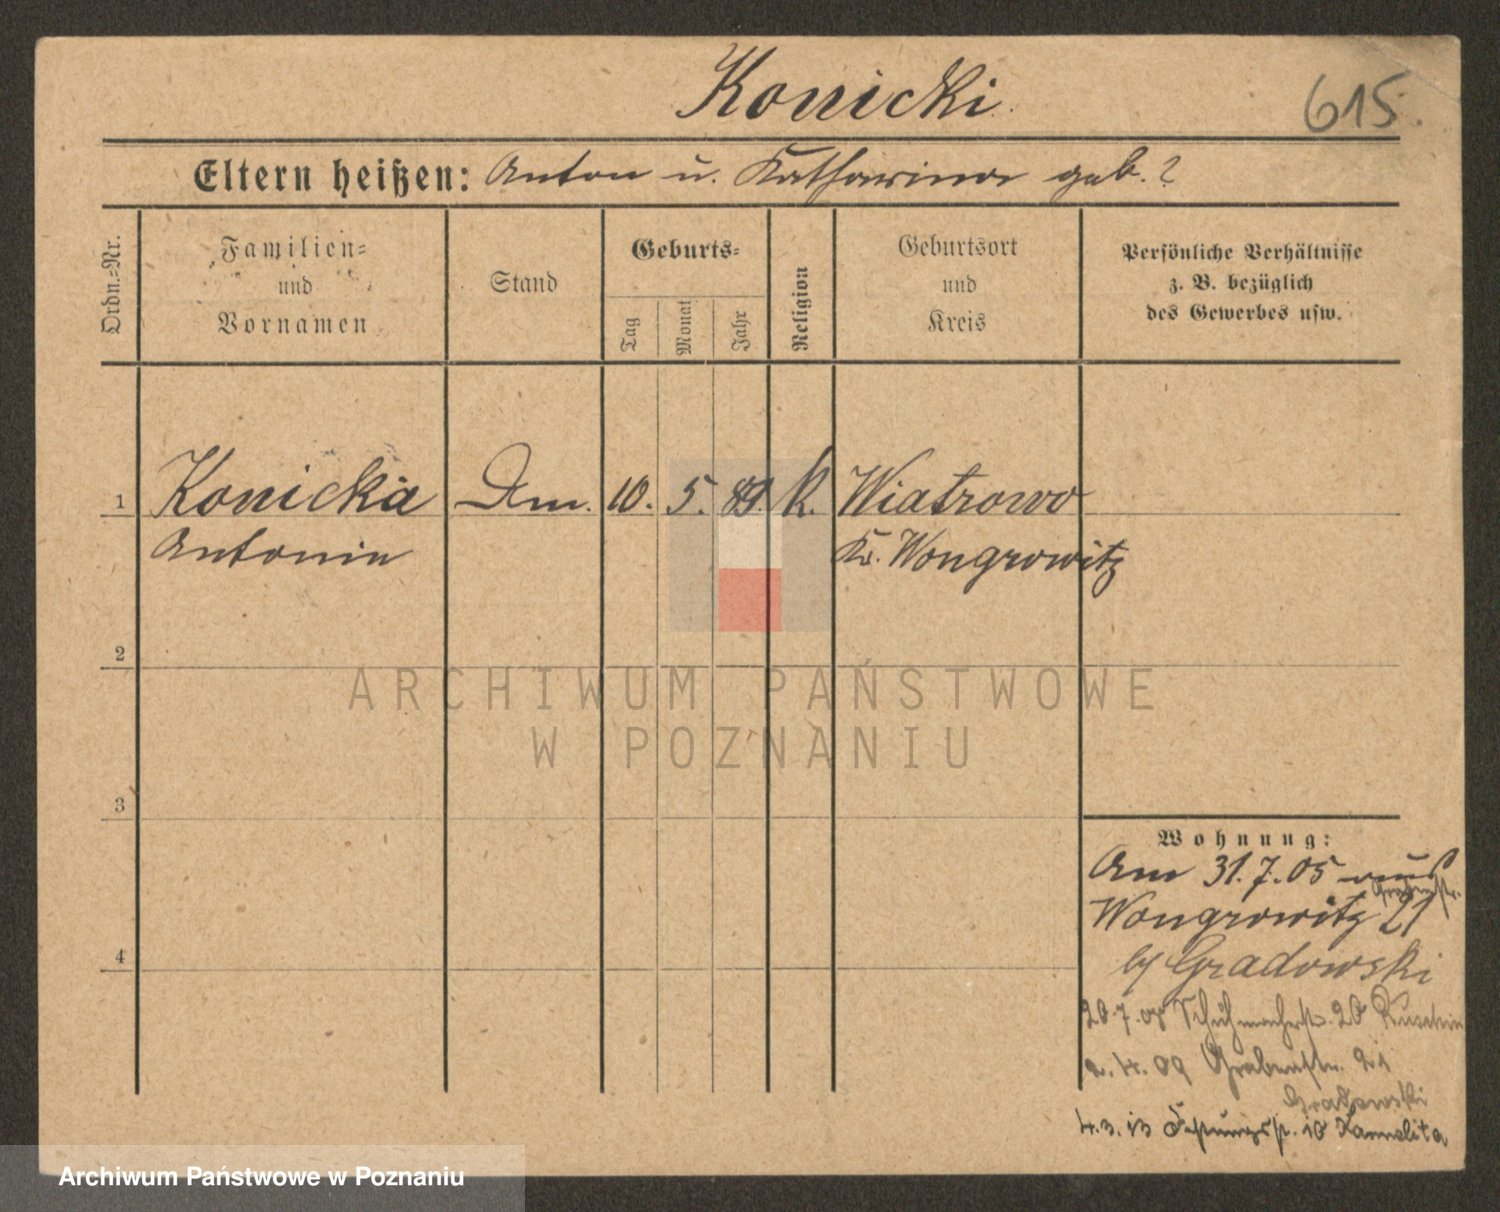 Konicki
615.
Eltern heißen: Anton u. Katharina geb. ?
Ordn.-Nr.
Familien-
und
Vornamen
Stand
Geburts-
Tag
Monat
Jahr
Religion
Geburtsort
und
Kreis
Persönliche Verhältnisse
z. B. bezüglich
des Gewerbes usw.
1 Konicka Dm. 10. 5. 89. k. Wiatrowo
Antonie Kr. Wongrowitz
2
ARCHIWUM PAŃSTWOWE
W POZNANIU
3
Wohnung:
Am 31.7.05 aus
Grabenstr.
Wongrowitz 21
Gradowski
4
20.7.08 Schuhmacherstr. 20
2.4.09 Grabenstr. 21
Grabowski
4.3.13 Festungsstr. 10
Archiwum Państwowe w Poznaniu